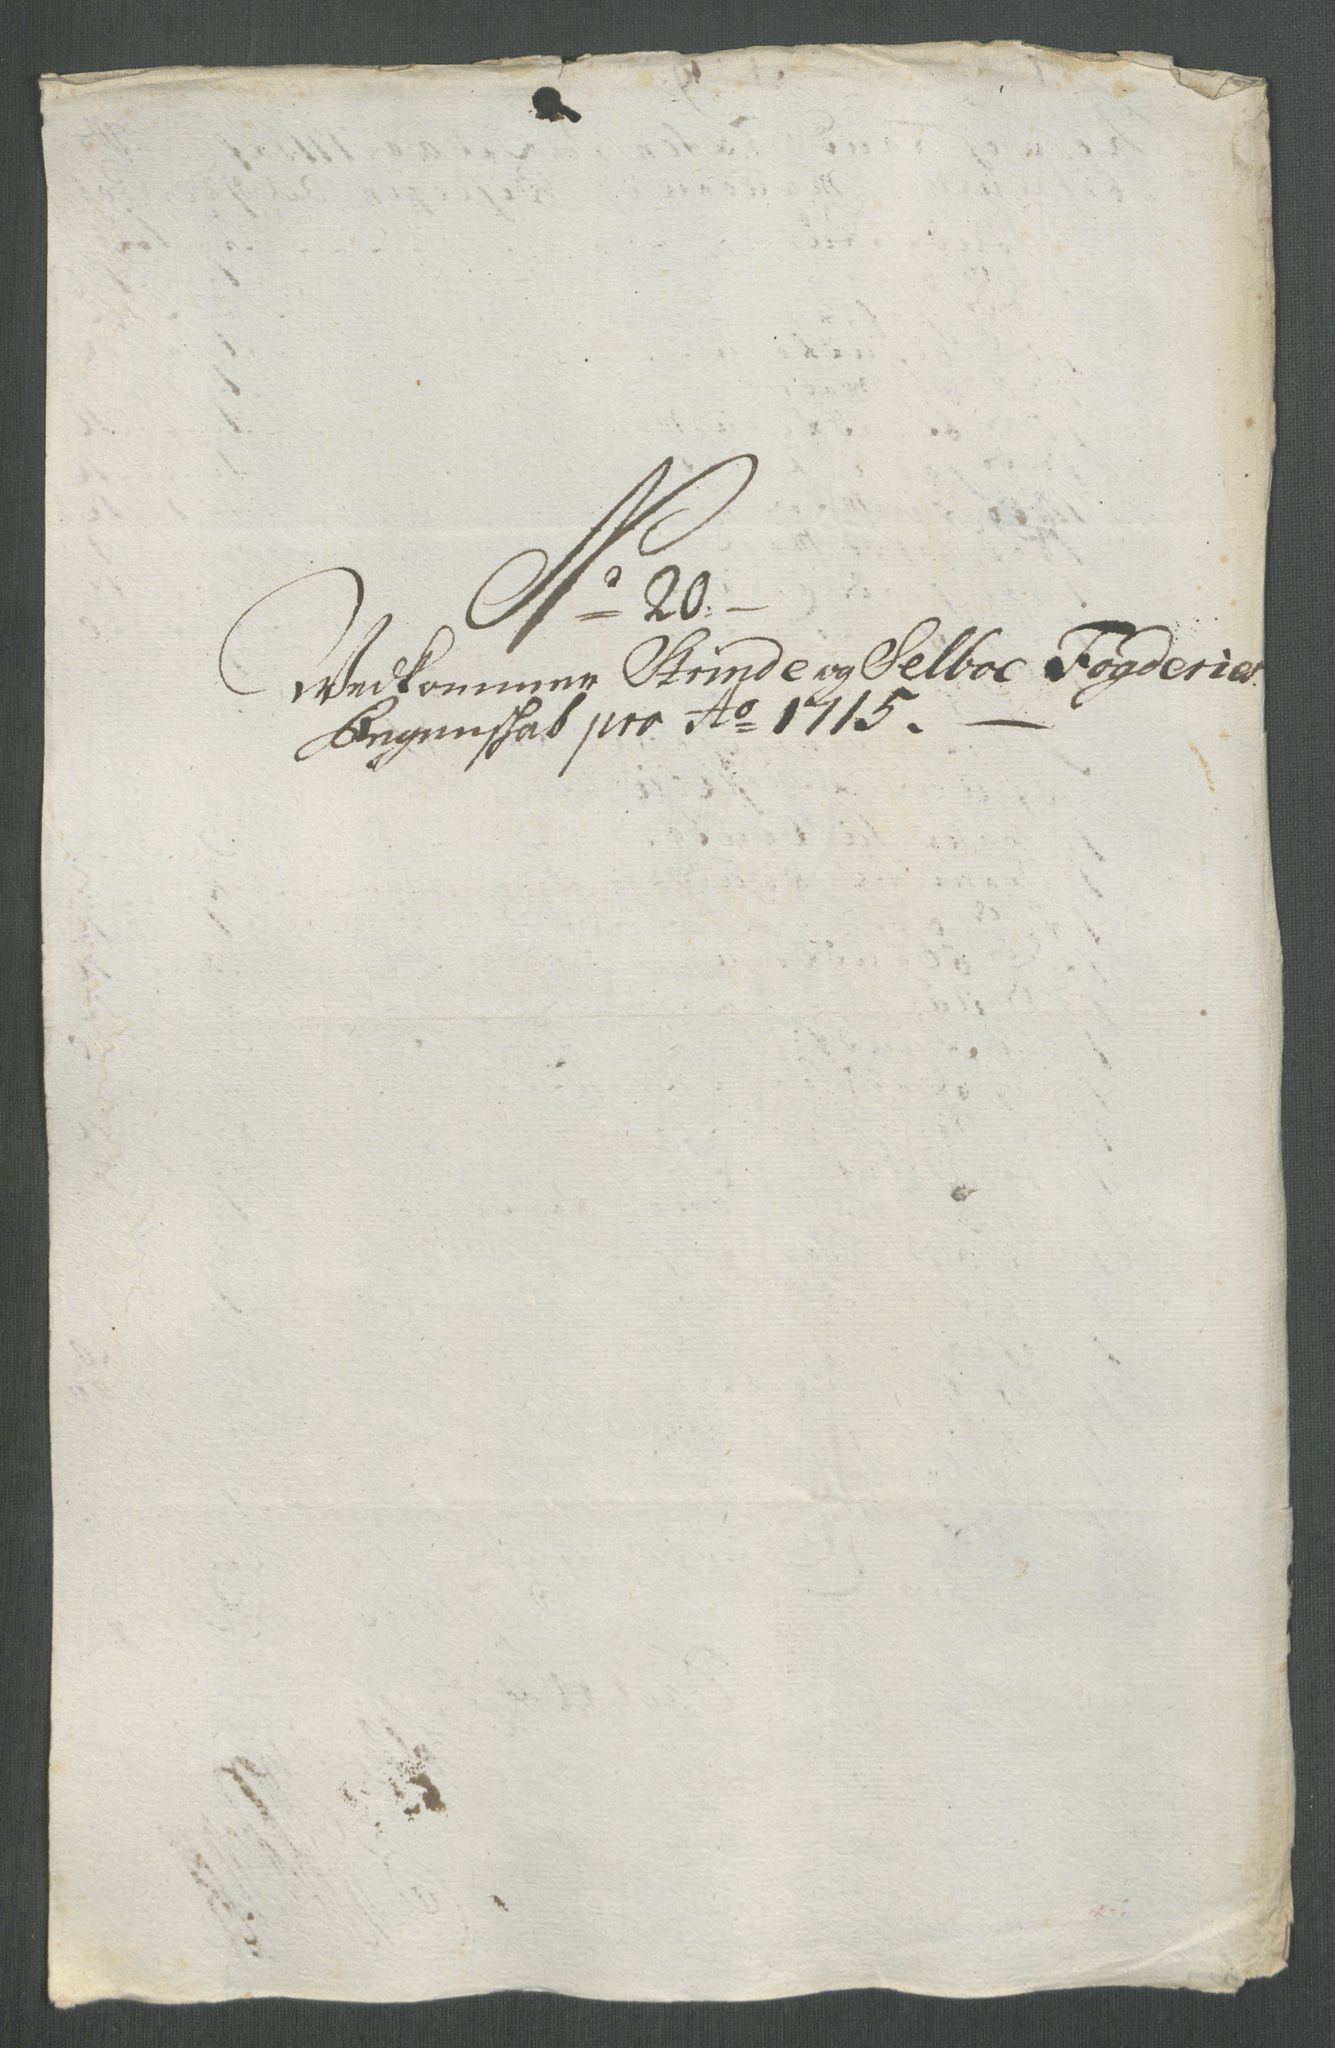 No 20.
Vedkommer Strinde og Selboe Fogderies
Regenskab pro Ao 1715.